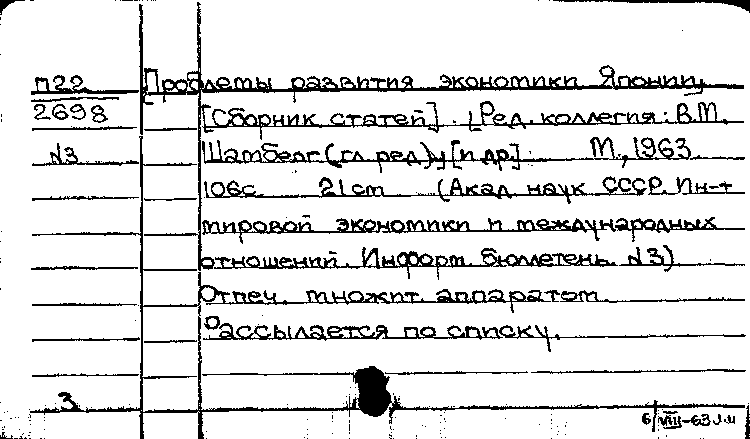 П22 [Проблемы развития экономики Японии,
2698 [Сборник статей]. [Ред. коллегия: В.М.
N3 Шамберг (гл. ред) и [п др]. М., 1963
106с 21ст (Акад наук СССР. Ин-т
мировой экономики и международных
отношений. Информ. бюллетень N3)
Отпеч. множит. аппаратом.
Рассылается по списку.
3
6/VIII-63